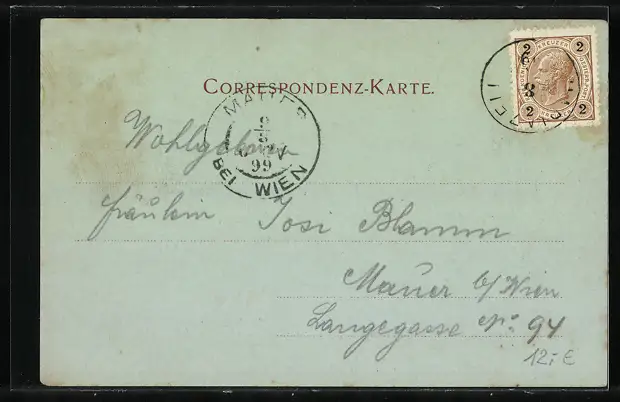 CORRESPONDENZ-KARTE.
MAUER
BEI WIEN
99
2 2
KREUZER
2 2
Wohlgeboren
Fräulein Josi Blamm
Mauer b/Wien
Langegasse No. 94
12,- €